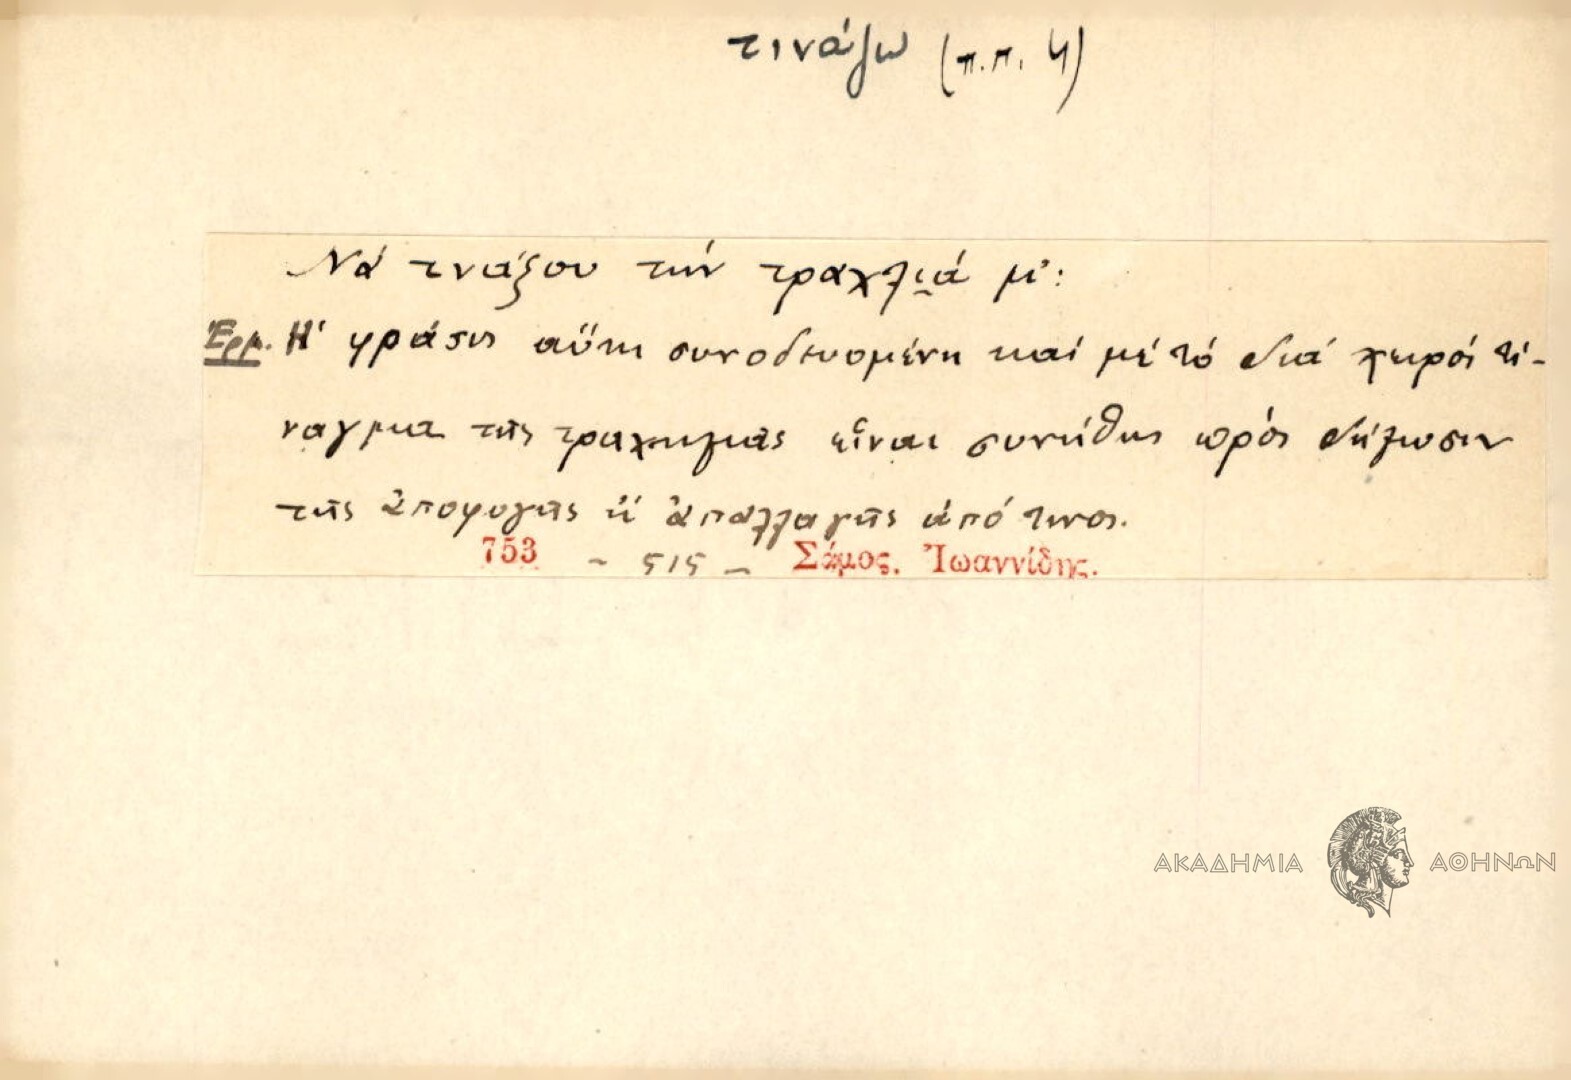 τινάζω (π.π. 4)
Νά τνάξου τήν τραχλιά μ':
Ἑρμ. Ἡ φράσις αὕτη συνοδευομένη καί μέ τό διά χειρός τί-
ναγμα τῆς τραχηλιᾶς εἶναι συνήθης πρός δήλωσιν
τῆς ἀποφυγῆς ἤ ἀπαλλαγῆς ἀπό τινος.
753 - 515 - Σάμος. Ἰωαννίδης.
ΑΚΑΔΗΜΙΑ ΑΘΗΝΩΝ